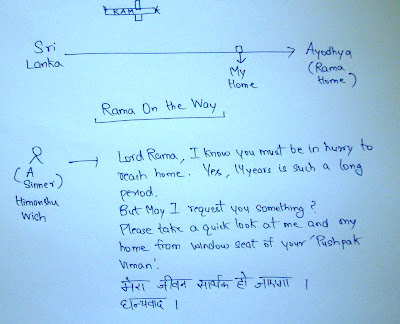 RAM
Sri Lanka
My Home
Ayodhya (Rama Home)
Rama On the Way
(A Sinner) Himanshu Wich
Lord Rama, I know you must be in hurry to
reach home. Yes, 14 years is such a long
period.
But May I request you something?
Please take a quick look at me and my
home from window seat of your 'Pushpak
Viman'.
मेरा जीवन सार्थक हो जाएगा ।
धन्यवाद ।